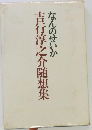 なんのせいか
吉行淳之介随想集